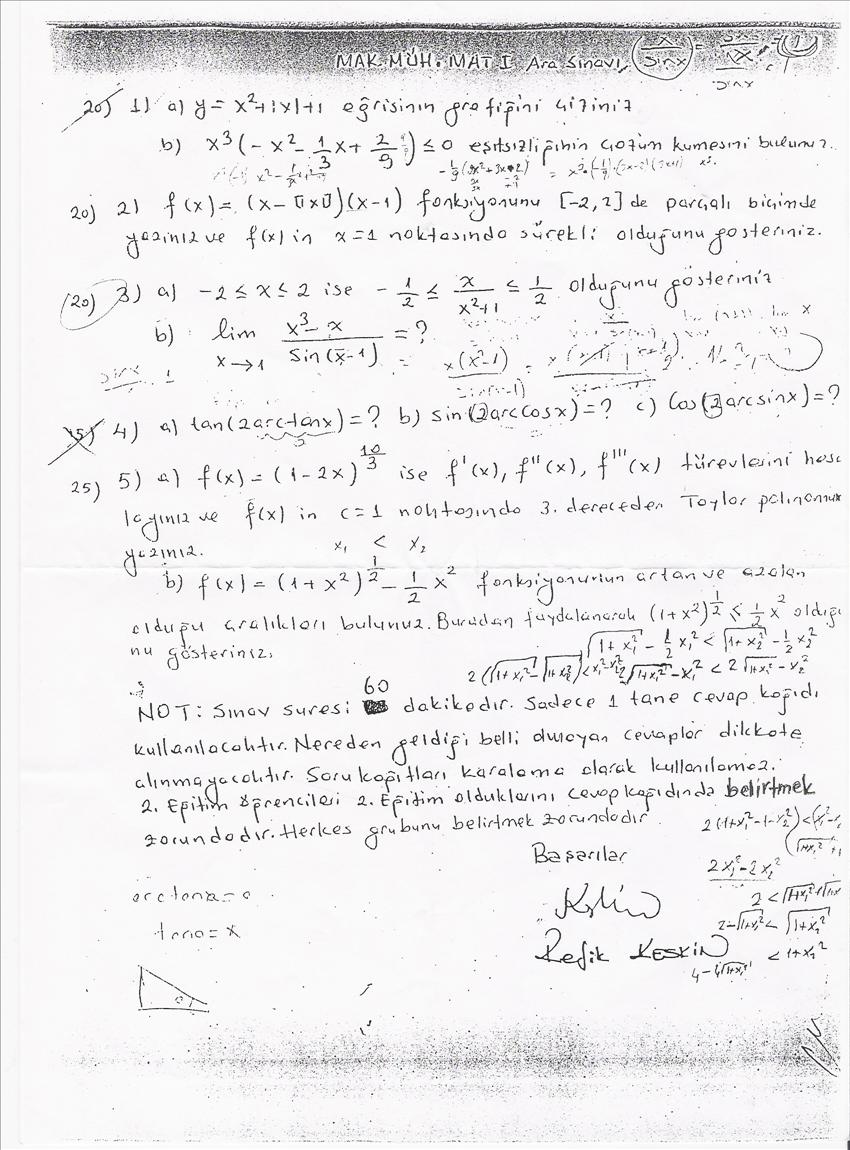 MAK. MÜH. MAT I Ara Sınavı
20) 1) a) y = x²+|x|+1 eğrisinin grafiğini çiziniz
b) x³(-x²-1/3x+2/9) ≤ 0 eşitsizliğinin çözüm kümesini bulunuz.
20) 2) f(x) = (x-⟦x⟧)(x-1) fonksiyonunu [-2,2] de parçalı biçimde
yazınız ve f(x) in x=1 noktasında sürekli olduğunu gösteriniz.
(20) 3) a) -2 ≤ x ≤ 2 ise -1/2 ≤ x/(x²+1) ≤ 1/2 olduğunu gösteriniz
b) lim x→1 (x³-x)/Sin(x-1) = ?
= x(x²-1)
15) 4) a) tan(2arctanx)=? b) sin(2arccosx)=? c) Cos(2arcsinx)=?
25) 5) a) f(x) = (1-2x)^(10/3) ise f'(x), f''(x), f'''(x) türevlerini hesa
layınız ve f(x) in c=1 noktasında 3. dereceden Taylor polinomun
yazınız.
x₁ < x₂
b) f(x) = (1+x²)^(1/2) - 1/2 x² fonksiyonunun artan ve azalan
olduğu aralıkları bulunuz. Buradan faydalanarak (1+x²)^(1/2) ≤ 1/2 x² olduğu
nu gösteriniz.
√(1+x₁²) - 1/2 x₁² < √(1+x₂²) - 1/2 x₂²
60
NOT: Sınav süresi dakikadır. Sadece 1 tane cevap kağıdı
kullanılacaktır. Nereden geldiği belli olmayan cevaplar dikkate
alınmayacaktır. Soru kağıtları karalama olarak kullanılamaz.
2. Eğitim öğrencileri 2. Eğitim olduklarını cevap kağıdında belirtmek
zorundadır. Herkes grubunu belirtmek zorundadır.
Başarılar
2x₁²-2x₂²
arctanx=a
tana=x
Refik KESKİN
< 1+x₂²